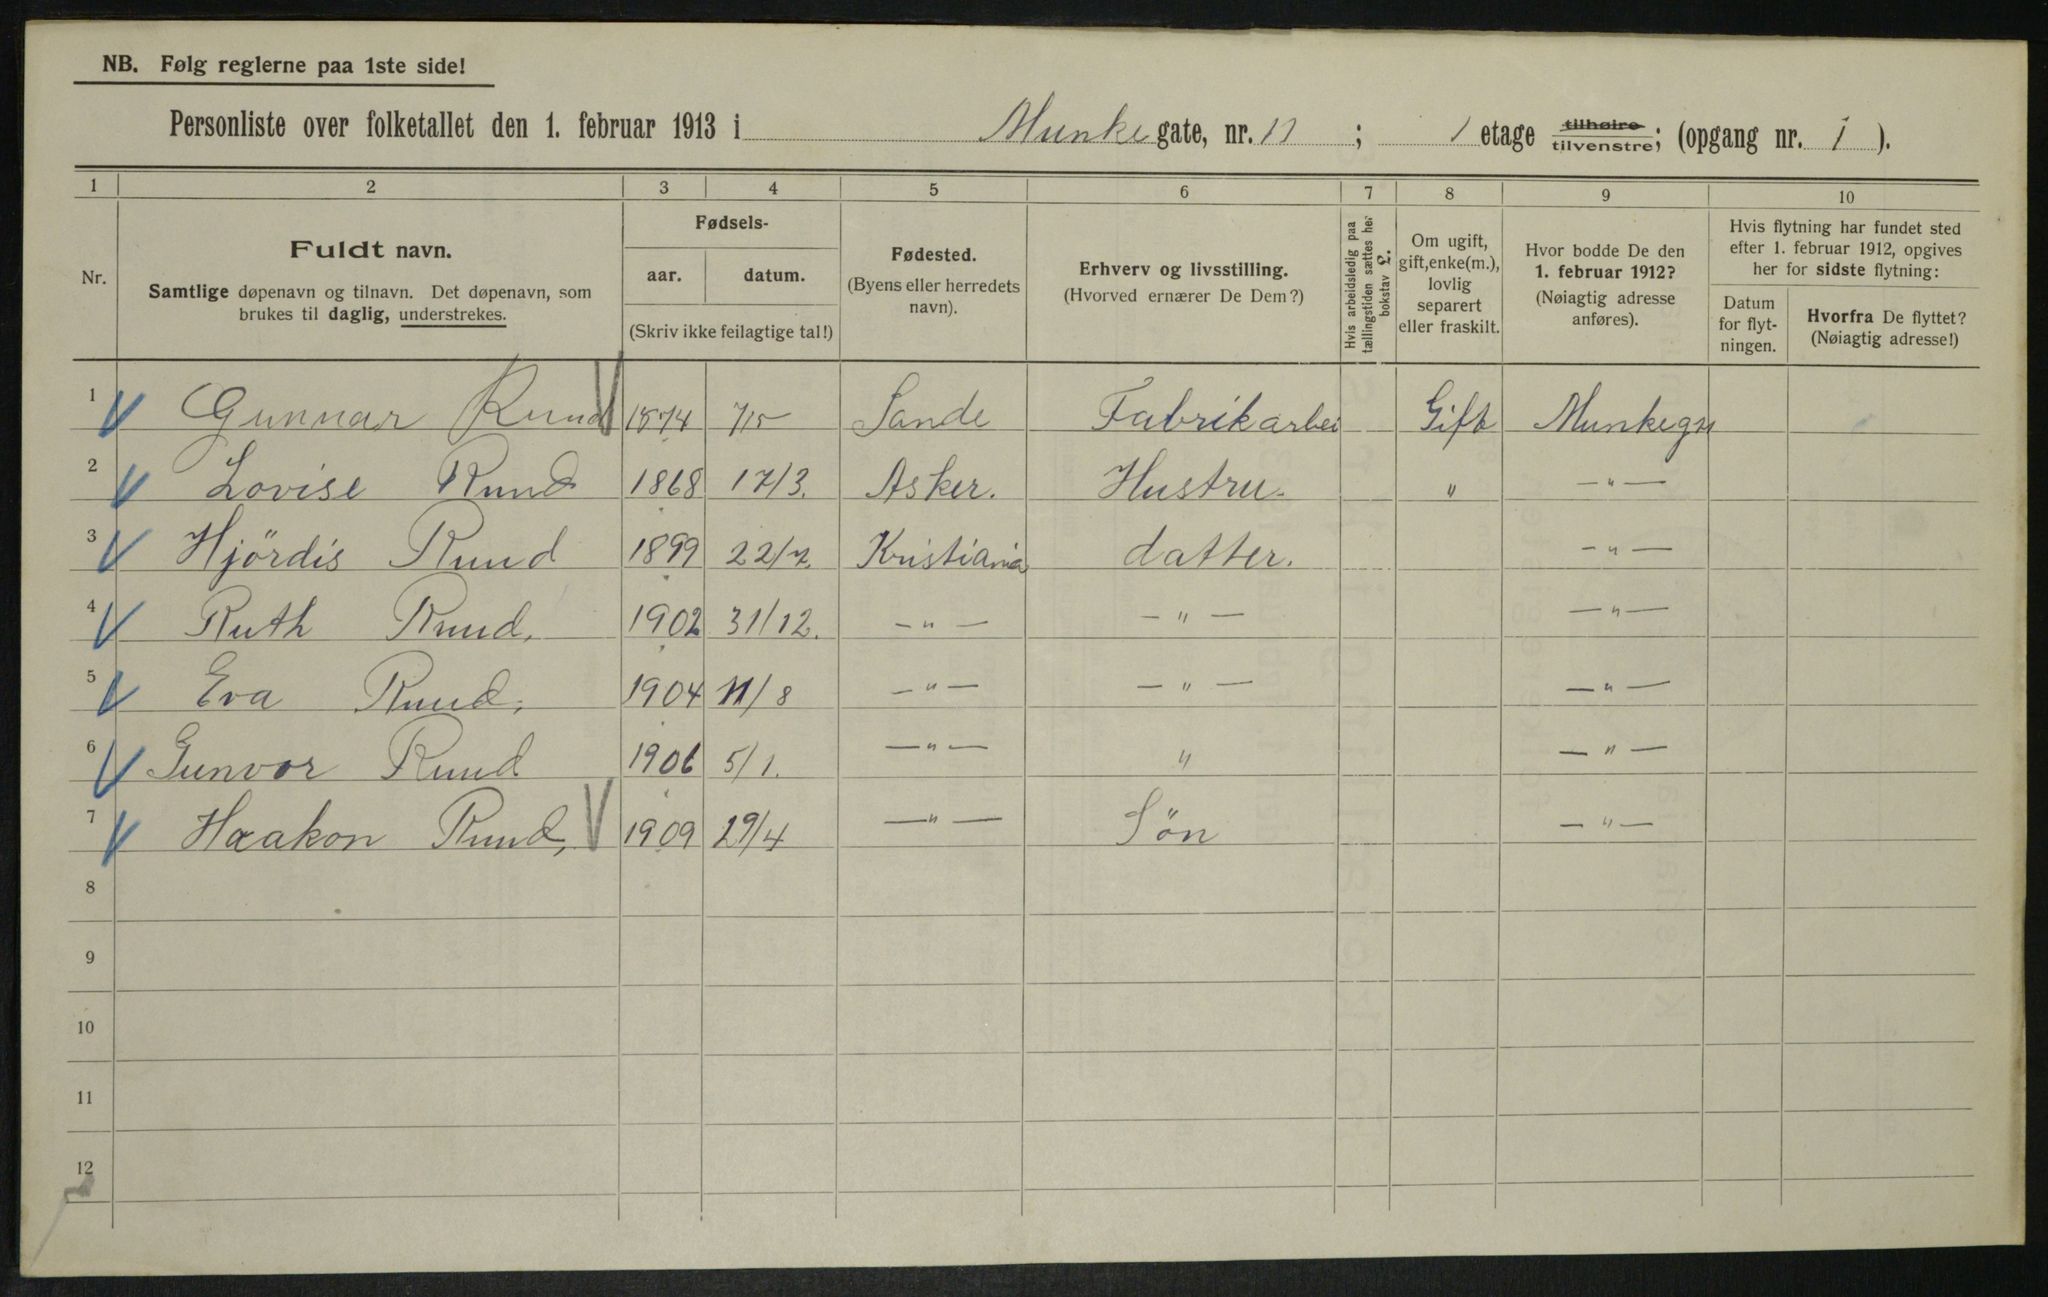 NB. Følg reglerne paa 1ste side!
Personliste over folketallet den 1. februar 1913 i Munke gate, nr. 11 ; 1 etage tilhøire tilvenstre; (opgang nr. 1 ).
1 2 3 4 5 6 7 8 9 10
Nr.
Fuldt navn.
Samtlige døpenavn og tilnavn. Det døpenavn, som
brukes til daglig, understrekes.
Fødsels-
aar. datum.
(Skriv ikke feilagtige tal!)
Fødested.
(Byens eller herredets
navn).
Erhverv og livsstilling.
(Hvorved ernærer De Dem?)
Hvis arbeidsledig paa
tællingstiden sættes her
bokstav L.
Om ugift,
gift, enke(m.),
lovlig
separert
eller fraskilt.
Hvor bodde De den
1. februar 1912?
(Nøiagtig adresse
anføres).
Hvis flytning har fundet sted
efter 1. februar 1912, opgives
her for sidste flytning:
Datum
for flyt-
ningen.
Hvorfra De flyttet?
(Nøiagtig adresse!)
1 Gunnar Ruud 1874 7/5 Sande Fabrikarbei Gift Munkeg 11
2 Lovise Ruud 1868 17/3. Asker. Hustru. " —"—
3 Hjördis Ruud 1899 22/7. Kristiania datter. —"—
4 Ruth Ruud, 1902 31/12. —"— —"— —"—
5 Eva Ruud, 1904 11/8 —"— —"— —"—
6 Gunvor Ruud 1906 5/1. —"— " —"—
7 Haakon Ruud, 1909 29/4 —"— Søn —"—
8
9
10
11
12